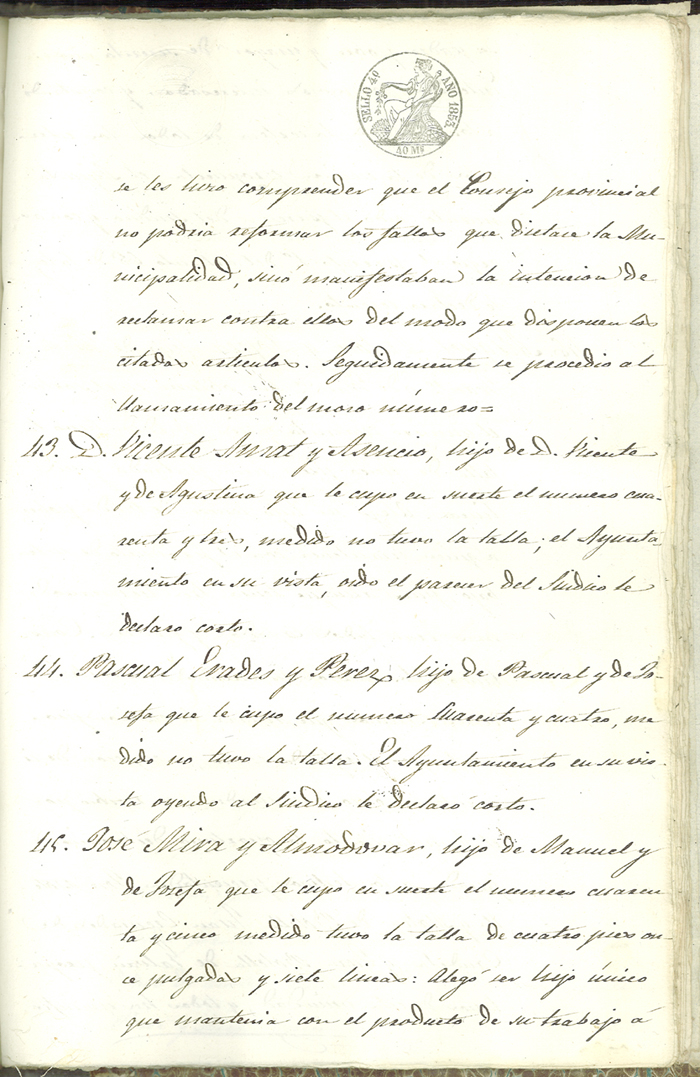 SELLO 4º AÑO 1853.
40 Ms
se les hizo comprender que el Consejo provincial
no podria reformar los fallos que dictare la Mu-
nicipalidad, sinó manifestaban la intencion de
reclamar contra ellos del modo que disponen los
citados articulos. Seguidamente se procedió al
llamamiento del mozo número=
43. D. Vicente Amat y Asencio, hijo de D. Vicente
y de Agustina que le cupo en suerte el numero cua-
renta y tres, medido no tuvo la talla; el Ayunta-
miento en su vista, oido el parecer del Sindico le
declaro corto.
44. Pascual Erades y Perez, hijo de Pascual y de Jo-
sefa que le cupo el numero Cuarenta y cuatro, me
dido no tuvo la talla. El Ayuntamiento en su vis-
ta oyendo al Sindico le declaró corto.
45. José Mira y Almodovar, hijo de Manuel y
de Josefa que le cupo en suerte el numero cuaren
ta y cinco medido tuvo la talla de cuatro pies on-
ce pulgadas y siete lineas: Alegó ser hijo único
que mantenia con el producto de su trabajo á